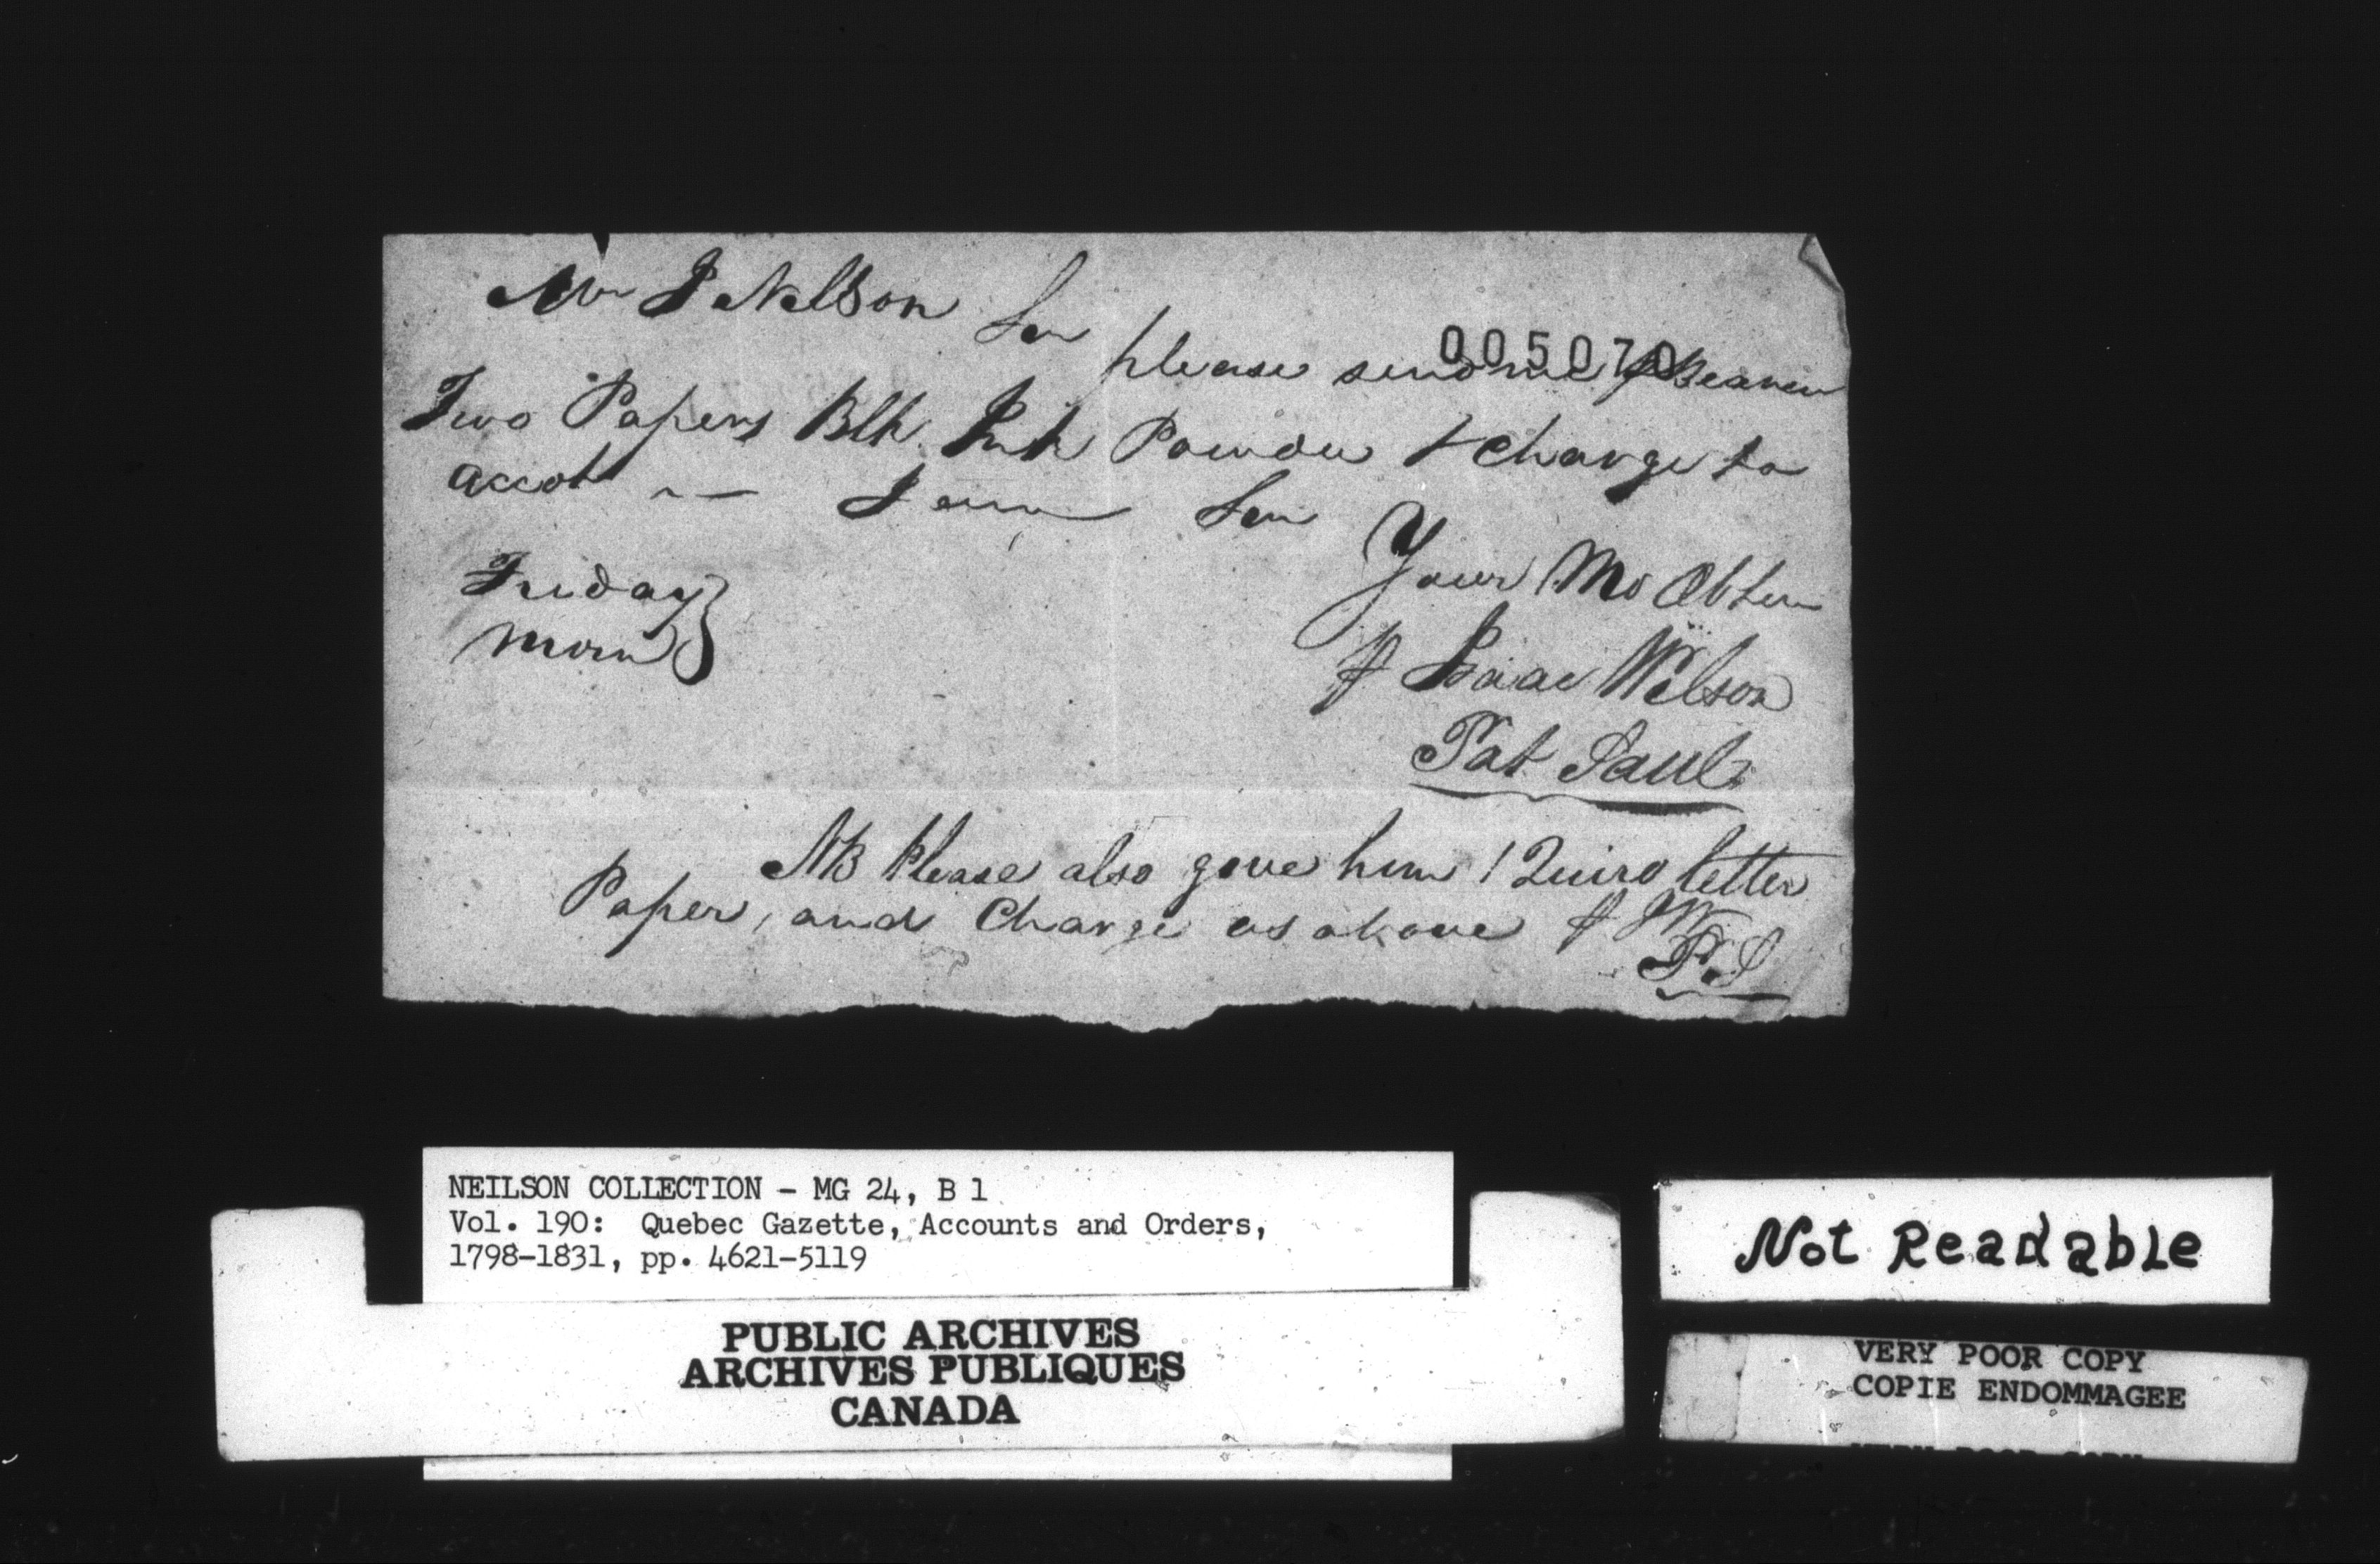 Mr J Nelson Sir
005070
please send me p Bearer
Two Papers Blk Ink Powder & charge to
accot — I am Sir
Your Mo Obt Ser
Friday
morn
p Isaac Wilson
Pat Saul
NB Please also give him 1 Quire letter
Paper, and Charge as above p IW
P.S
NEILSON COLLECTION - MG 24, B 1
Vol. 190: Quebec Gazette, Accounts and Orders,
1798-1831, pp. 4621-5119
PUBLIC ARCHIVES
ARCHIVES PUBLIQUES
CANADA
Not Readable
VERY POOR COPY
COPIE ENDOMMAGEE